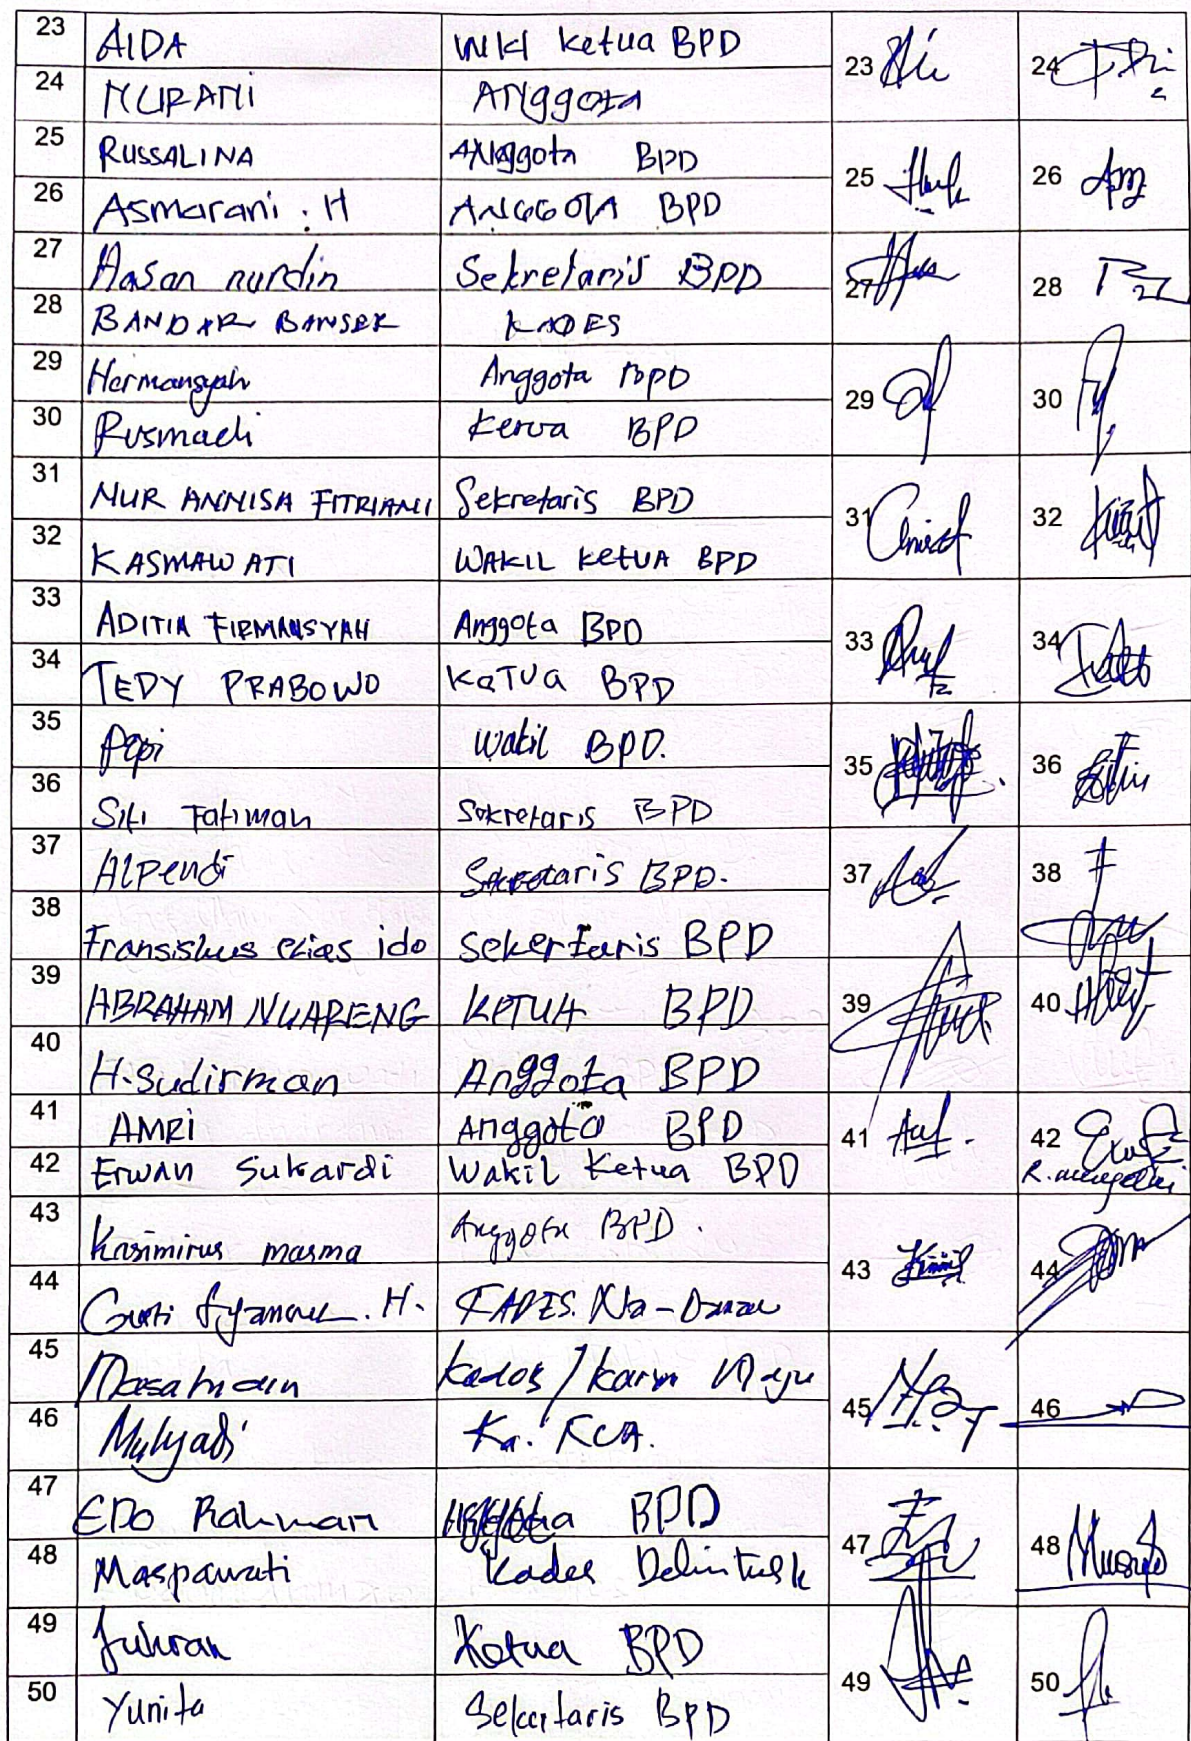 23 AIDA WKI Ketua BPD 23 24
24 NURANI Anggota
25 RUSSALINA Anggota BPD 25 26
26 Asmarani . H ANGGOTA BPD
27 Hasan nurdin Sekretaris BPD 27 28
28 BANDAR BANSER KADES
29 Hermansyah Anggota BPD 29 30
30 Rusmadi Ketua BPD
31 NUR ANNISA FITRIANI Sekretaris BPD 31 32
32 KASMAWATI WAKIL KETUA BPD
33 ADITIA FIRMANSYAH Anggota BPD 33 34
34 TEDY PRABOWO KaTUA BPD
35 Pepi Wakil BPD. 35 36
36 Siti Fatimah Sekretaris BPD
37 Alpendi Sekretaris BPD. 37 38
38 Fransiskus elias ido Sekertaris BPD
39 ABRAHAM NUARENG KETUA BPD 39 40
40 H.Sudirman Anggota BPD
41 AMRI Anggota BPD 41 42
42 Erwan Sukardi Wakil Ketua BPD
43 Kasimirus masma Anggota BPD . 43 44
44 H.
45 45 46
46 Mulyadi Ka.
47 EDO Rahman BPD 47 48
48 Maspawati Kades
49 Juhran Ketua BPD 49 50
50 Yunita Sekertaris BPD